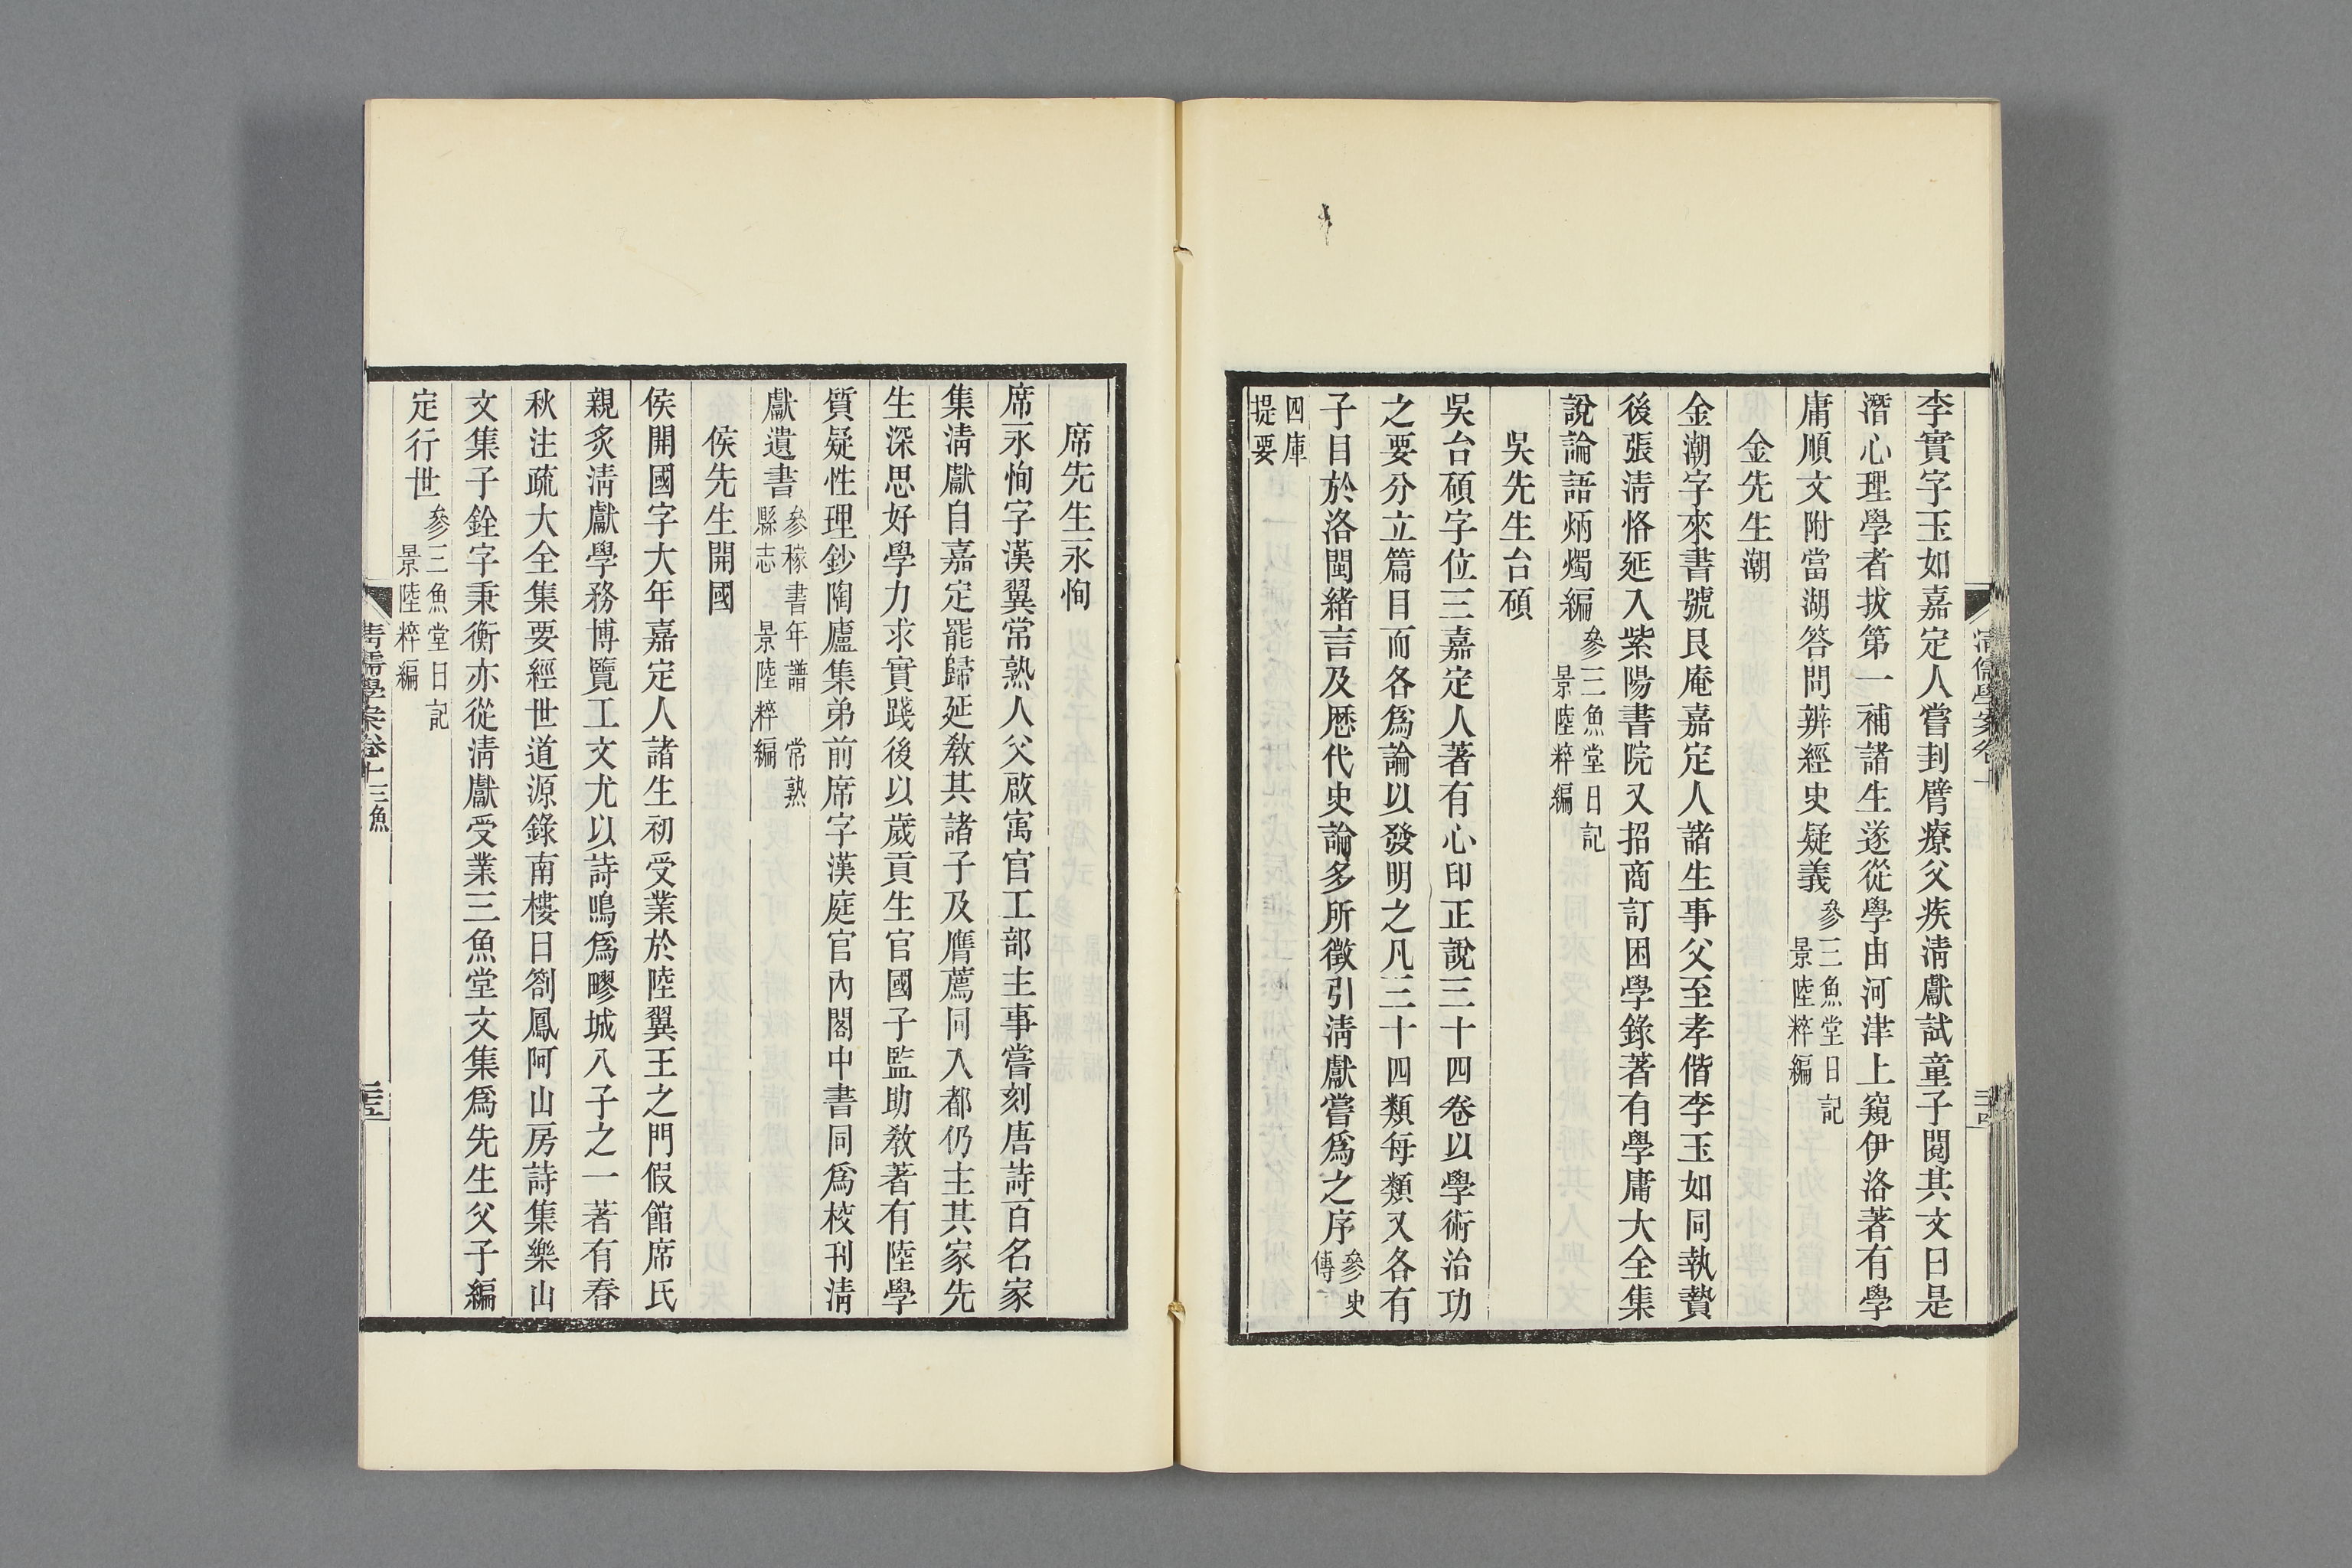 李實字玉如嘉定人嘗刲臂療父疾清獻試童子閱其文曰是
潛心理學者拔第一補諸生遂從學由河津上窺伊洛著有學
庸順文附當湖答問辨經史疑義參三魚堂日記景陸粹編
金先生潮
金潮字來書號艮庵嘉定人諸生事父至孝偕李玉如同執贄
後張清恪延入紫陽書院又招商訂困學錄著有學庸大全集
說論語炳燭編參三魚堂日記景陸粹編
吳先生台碩
吳台碩字位三嘉定人著有心印正說三十四卷以學術治功
之要分立篇目而各爲論以發明之凡三十四類每類又各有
子目於洛閩緒言及歷代史論多所徵引清獻嘗爲之序參史傳
四庫提要
席先生永恂
席永恂字漢翼常熟人父啟寓官工部主事嘗刻唐詩百名家
集清獻自嘉定罷歸延敎其諸子及膺薦同入都仍主其家先
生深思好學力求實踐後以歲貢生官國子監助敎著有陸學
質疑性理鈔陶廬集弟前席字漢庭官內閣中書同爲校刊清
獻遺書參稼書年譜 常熟縣志 景陸粹編
侯先生開國
侯開國字大年嘉定人諸生初受業於陸翼王之門假館席氏
親炙清獻學務博覽工文尤以詩鳴爲疁城八子之一著有春
秋注疏大全集要經世道源錄南樓日劄鳳阿山房詩集樂山
文集子銓字秉衡亦從清獻受業三魚堂文集爲先生父子編
定行世參三魚堂日記景陸粹編
清儒學案卷十 三魚